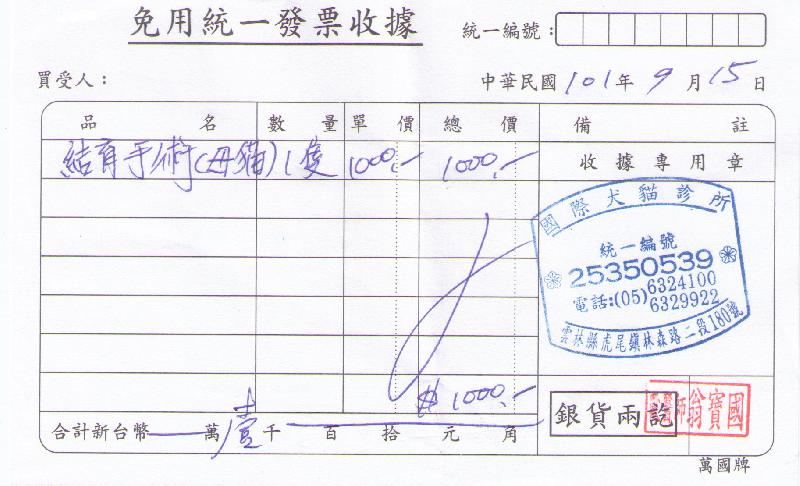 免用統一發票收據
統一編號：
買受人：
中華民國 101 年 9 月 15 日
品名 數量 單價 總價 備註
結育手術(母貓) 1隻 1000.- 1000.- 收據專用章
國際犬貓診所
統一編號
25350539
電話:(05)6324100
6329922
雲林縣虎尾鎮林森路二段180號
$1000.-
合計新台幣 萬 壹 千 百 拾 元 角
銀貨兩訖
萬國牌